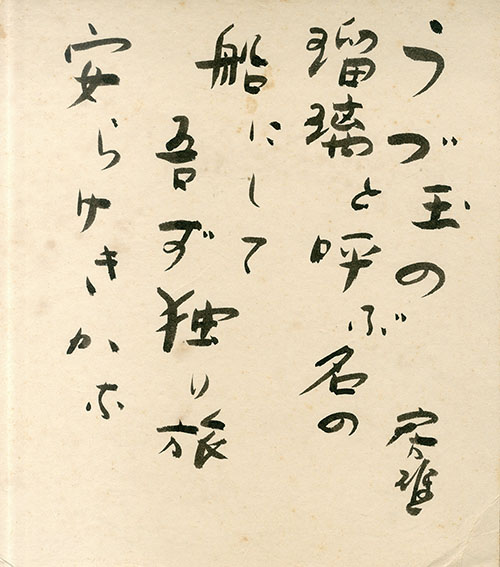 うづ玉の
瑠璃と呼ぶ名の
船にして
吾ず独り旅
安らゆきかな